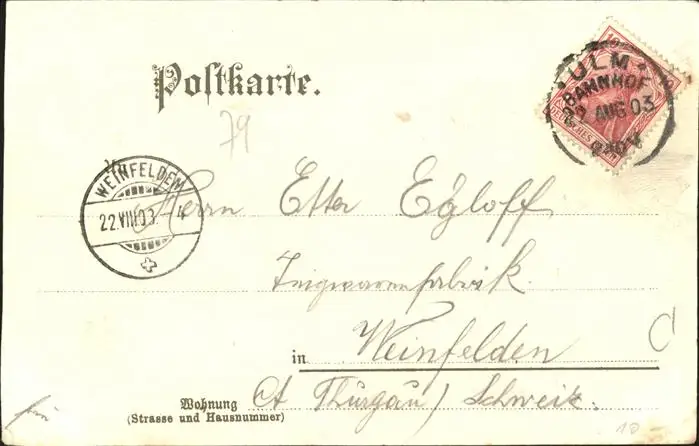 Postkarte.
10
DEUTSCHES REICH
ULM
BAHNHOF
AUG 03
79
WEINFELDEN
22.VIII.03.
Herrn Etter Egloff
Teigwarenfabrik.
in Weinfelden
Ct Thurgau / Schweiz.
C
Wohnung
(Strasse und Hausnummer)
10-